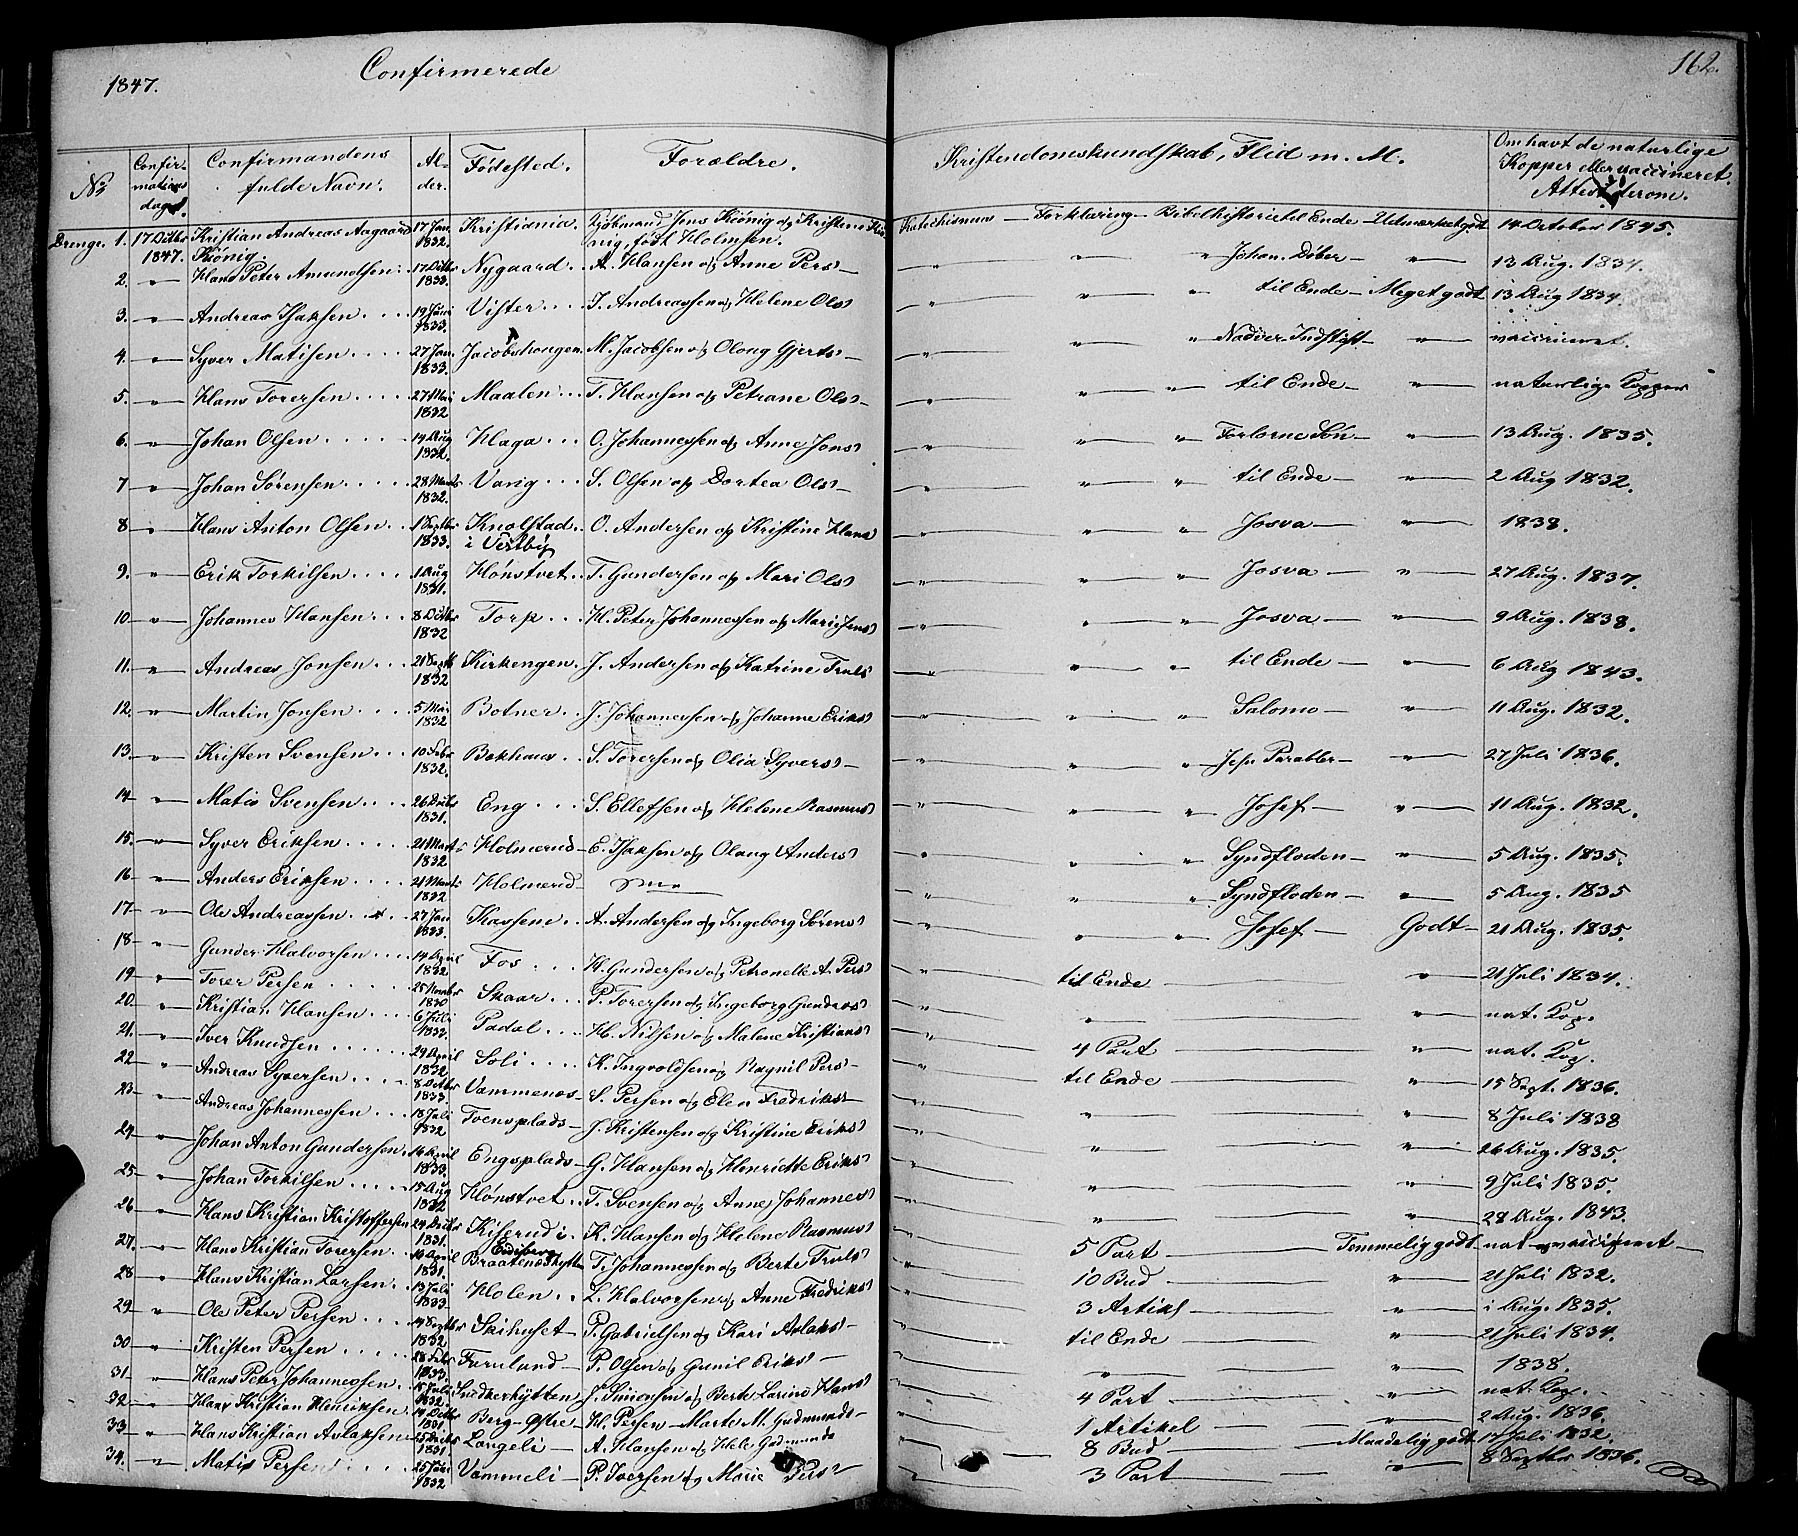 1847. Confirmerede 162.
No Confirmations dage. Confirmandens fulde Navn. Alder. Fødested. Forældre. Kristendomskundskab, Flid m. M. Om havt de naturlige Kopper eller vaccineret. Attest derom.
Drenge. 1. 17 Octbr 1847. Kristian Andreas Aagaard Kiönig. 17 Jan 1832. Kristiania. Kjöbmand Jens Kiönig og Kristine født Holmsen. Katechismus — Forklaring — Bibelhistorie til Ende — Udmærket godt 14 October 1845.
2. " Hans Peter Amundsen. 17 Octbr 1833. Nygaard. A. Hansen og Anne Pers — " " " Johan. Döber — " 13 Aug. 1834.
3. " Andreas Isaksen 19 Juni 1833. Vister. I. Andreassen og Helene Ols " " " til Ende — Meget godt 13 Aug 1834.
4. " Syver Matisen 27 Jan. 1833. Jacobshongen M. Jacobsen og Olong Gjerts — " " " Nadver Indstift — " vaccineret.
5. " Hans Torersen 27 Mai 1832 Maalen T. Hansen og Petrane Ols — " " " til Ende — " naturlige Kopper
6. " Johan Olsen 14 Aug 1832. Haga O. Johannessen og Anne Jons " " " Forlorne Søn — " 13 Aug. 1835.
7 " Johan Sörensen 28 Marts 1832. Varig S. Olsen og Dortea Ols — " " " til Ende — " 2 Aug 1832.
8 " Hans Anton Olsen 1 Septbr 1833. Knolstad i Vestby O. Andersen og Kristine Hans " " " Josva — " 1838.
9. " Erik Torkilsen 1 Aug 1831. Hönstvet T. Gundersen og Mari Ols " " " Josva — " 27 Aug. 1837.
10 " Johannes Hansen 8 Octbr 1832 Torp H. Peter Johannessen og Mari Jens " " " Josva — " 9 Aug. 1838.
11. " Andreas Jonsen 21 Septb 1832 Kirkengen J. Andersen og Katrine Truls " " " til Ende — " 6 Aug 1843.
12. " Martin Jonsen 5 Mai 1832 Botner J. Johannessen og Johanne Eriks " " " Salomo — " 11 Aug. 1832.
13. " Kristen Svensen 10 Febr 1832. Bækhaus S. Torersen og Olia Syvers — " " " Jesu Parabler — " 27 Juli 1836.
14 " Matis Svensen 26 Octbr 1831. Eng S. Ellefsen og Helene Rasmus " " " Josef — " 11 Aug. 1832.
15. " Syver Eriksen 21 Marts 1832 Holmerud — E. Isaksen og Olaug Anders " " " Syndfloden — " 5 Aug. 1835.
16 " Anders Eriksen 21 Marts 1832 Holmerud — " " " Syndfloden — " 5 Aug. 1835
17 " Ole Andreassen 27 Jan 1833. Kassene A. Andersen og Ingeborg Sörens " " " Josef — Godt — 21 Aug. 1835.
18 " Gunder Halvorsen 14 April 1832. Fos H. Gundersen og Petronelle A. Pers " til Ende — " 21 Juli 1834.
19 " Torer Persen 25 Novmbr 1830 Skaar P. Torersen og Ingeborg Gunders " " — " nat. Kop.
20. " Kristian Hansen 6 Juli 1832. Padal H. Nilsen og Malene Kristians " 4 Part — " nat. Kop.
21. " Iver Knudsen 24 April 1832 Soli K. Ingvoldsen og Ragnil Pers — " til Ende — " 15 Sept. 1836.
22 " Andreas Syversen 8 Octbr 1833. Vammenæs — S. Persen og Elen Fredriks — " " — " 8 Juli 1838
23 " Andreas Johannessen 18 Juli 1832 Toensplads — J. Kristensen og Kristine Eriks " " — " 26 Aug. 1835.
24 " Johan Anton Gundersen. 14 April 1833. Engsplads — G. Hansen og Henriette Eriks " " — " 9 Juli 1835.
25 " Johan Torkilsen 15 Aug 1832 Hönstvet T. Svensen og Anne Johannes " " — " 28 Aug. 1843.
26 " Hans Kristian Kristoffersen 24 Octbr 1831. Kiserud i Eidsberg K. Hansen og Helene Rasmus " 5 Part — Temmelig godt — nat vaccineret —
27. " Hans Kristian Torersen 10 April 1831. Braatenæshytten T. Johannessen og Berte Truls " 10 Bud — " 21 Juli 1832.
28 " Hans Kristian Larsen 13 Juli 1833 Holen L. Halvorsen og Anne Fredriks " 3 Artikl — " 1 Aug. 1835.
29 " Ole Peter Persen 14 Septbr 1832. Skihuset — P. Gabrielsen og Kari Aslaks — " til Ende — " 21 Juli 1834.
30 " Kristen Persen 28 Febr 1833. Faruland — P. Olsen og Gunil Eriks — " " — " 1838.
31 " Hans Peter Johannessen 15 Juli 1832. Snedkerhytten J. Simonsen og Berte Larine Hans " 4 Part — " nat. Kop.
32 " Hans Kristian Henriksen 14 Octbr 1831 Berg-østre — H. Persen — Marte M. Gudmunds — " 1 Artikel — " 2 Aug. 1836.
33 " Hans Kristian Aslaksen 25 Octbr 1831 Langeli — A. Hansen og Hele Gudmunds " 8 Bud — Maadelig godt 17 Juli 1832.
34. " Matis Persen 25 Juni 1832 Vammeli — P. Iversen og Marie Pers — " 3 Part — " 8 Septbr 1836.